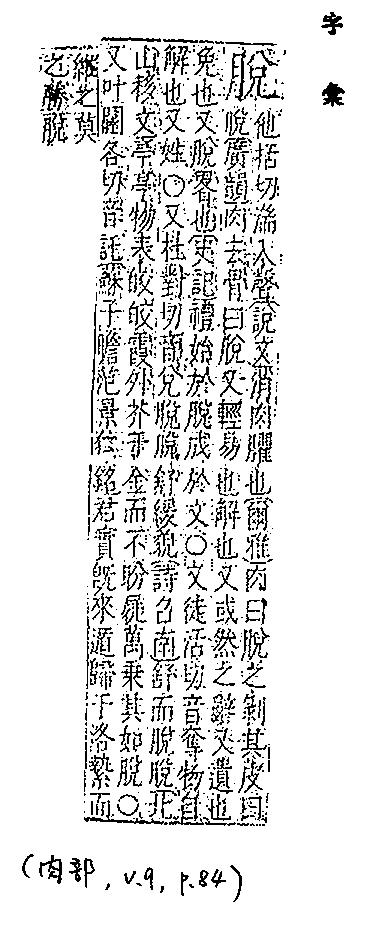 字彙
脫
他括切湍入聲說文消肉臞也爾雅肉曰脫之剝其皮曰
脫廣韻肉去骨曰脫又輕易也解也又或然之辭又遺也
免也又脫畧也史記禮始於脫成於文〇又徒活切音奪物自
解也又姓〇又杜對切音兌脫脫舒緩貌詩召南舒而脫脫北
山移文亭亭物表皎皎霞外芥千金而不盼屣萬乗其如脫〇
又叶闥各切音託蘇子瞻范景仁銘君實旣來遁歸于洛縶而
維之莫
之勝脫
(肉部, v.9, p.84)